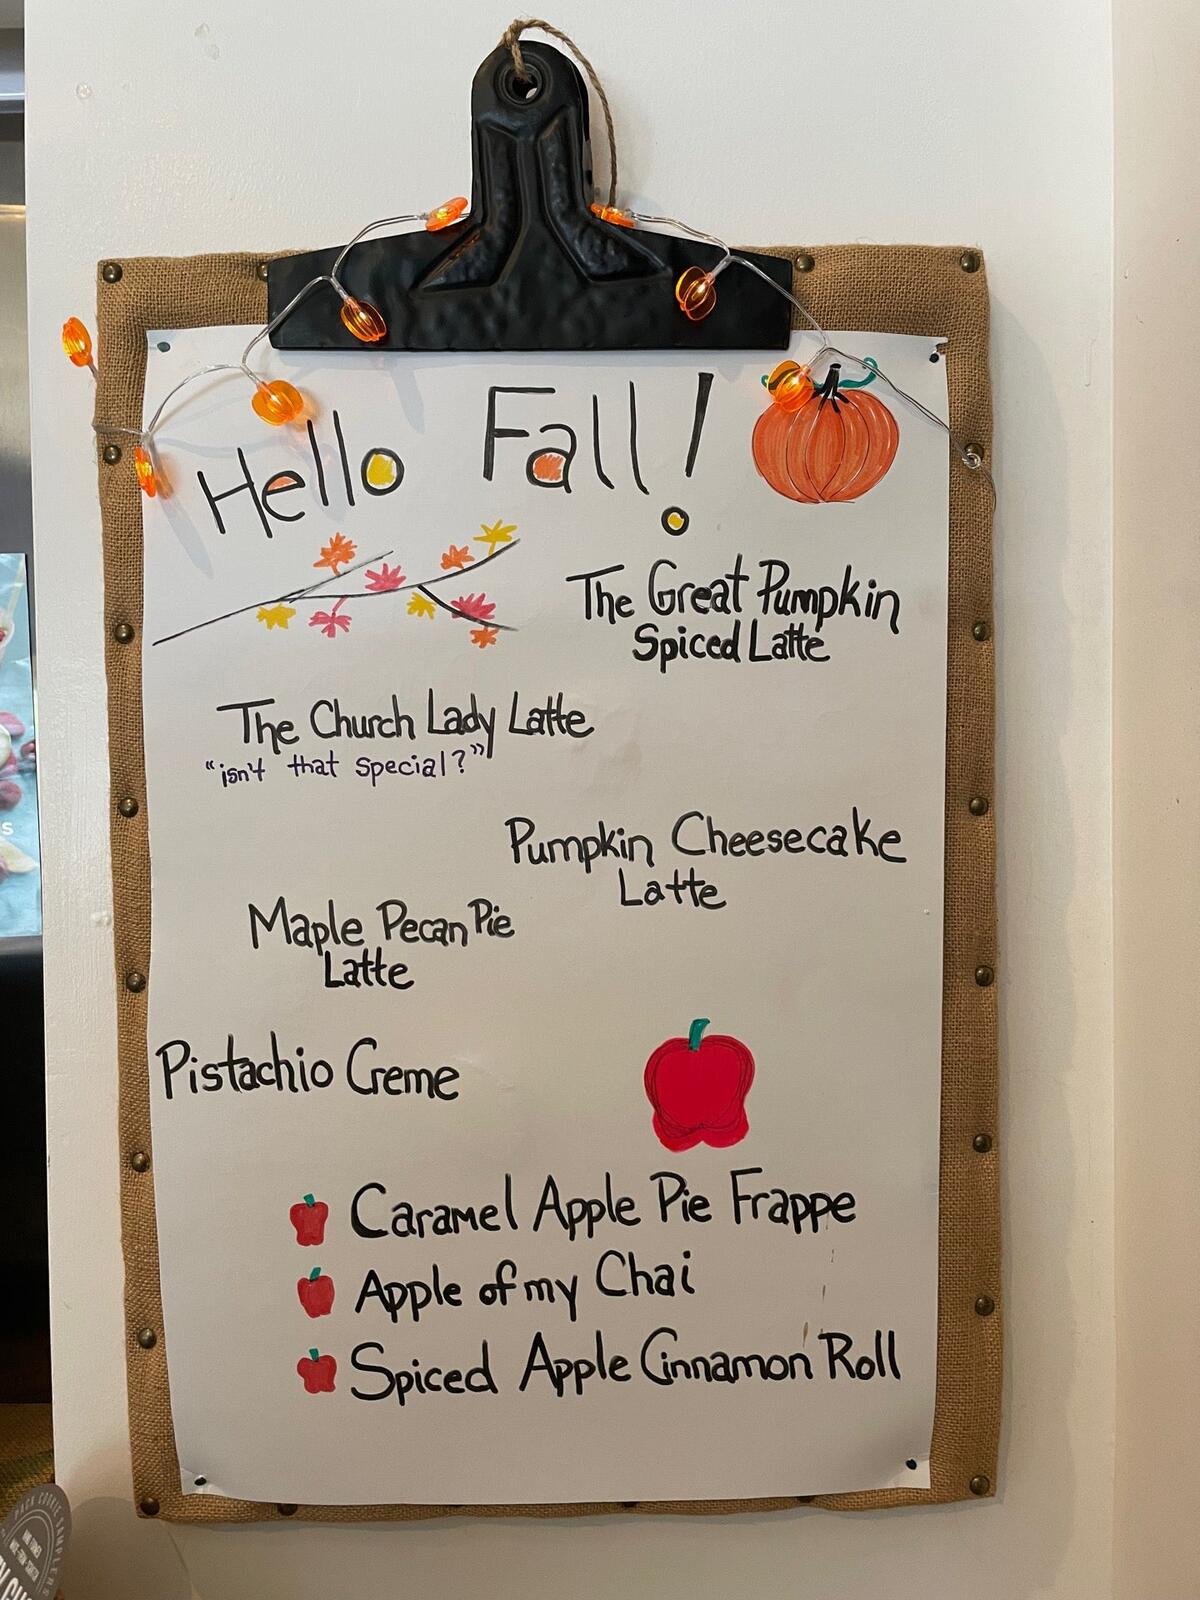 Hello Fall!
The Great Pumpkin
Spiced Latte
The Church Lady Latte
"isn't that special?"
Pumpkin Cheesecake
Latte
Maple Pecan Pie
Latte
Pistachio Creme
Caramel Apple Pie Frappe
Apple of my Chai
Spiced Apple Cinnamon Roll